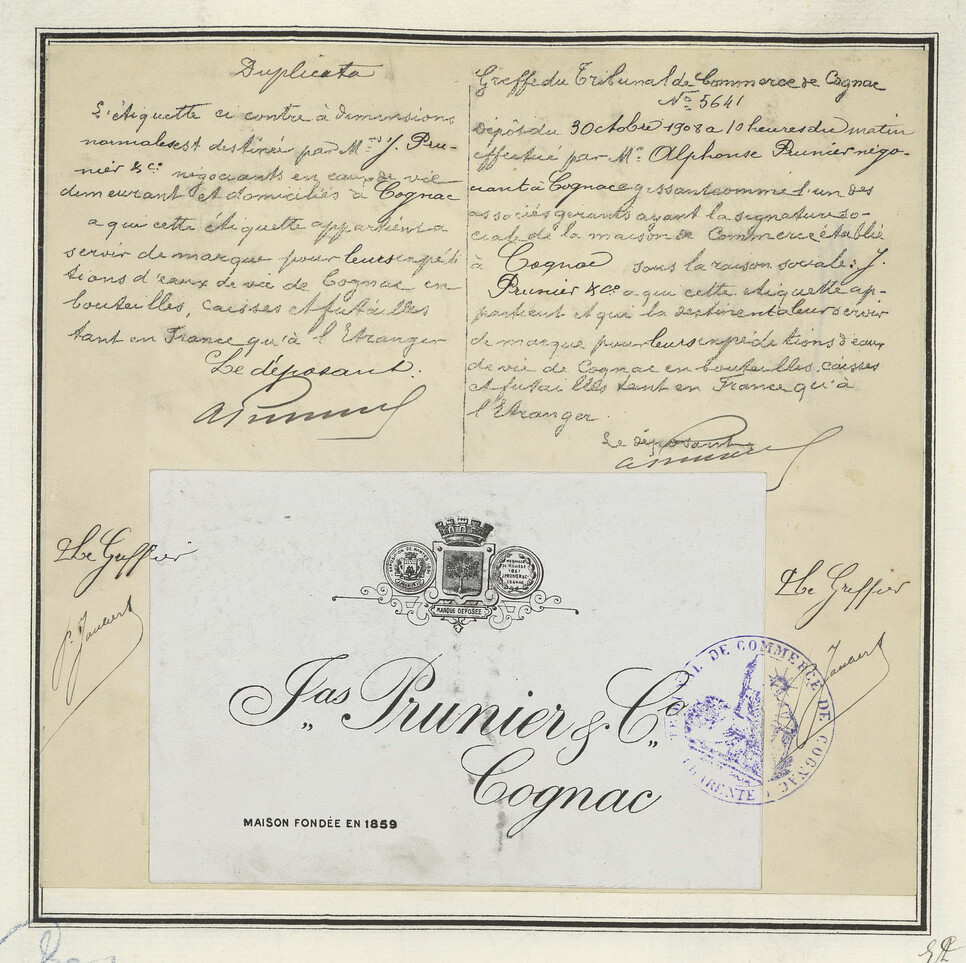 Duplicata
L'étiquette ci contre à dimensions
normales est destinée par Mrs J. Pru-
nier & Co négociants en eaux de vie
demeurant et domiciliés à Cognac
a qui cette étiquette appartient a
servir de marque pour leurs expédi
tions d'eaux de vie de Cognac en
bouteilles, caisses et futailles
tant en France qu'à l'Etranger
Le déposant:
A Prunier
Greffe du Tribunal de Commerce de Cognac
No 5641
Dépôt du 3 Octobre 1908 a 10 heures du matin
effectué par Mr. Alphonse Prunier négo-
ciant à Cognac agissant comme l'un des
associés gerants ayant la signature so-
ciale de la maison de Commerce établie
à Cognac sous la raison sociale: J.
Prunier & Co a qui cette étiquette ap-
partient et qui la destinent a leur servir
de marque pour leurs expéditions d'eaux
de vie de Cognac en bouteilles, caisses
et futailles tant en France qu'à
l'Etranger.
Le déposant
A Prunier
Le Greffier
Le Greffier
MARQUE DEPOSÉE
Jas Prunier & Co
Cognac
MAISON FONDÉE EN 1859
TRIBUNAL DE COMMERCE DE COGNAC
CHARENTE